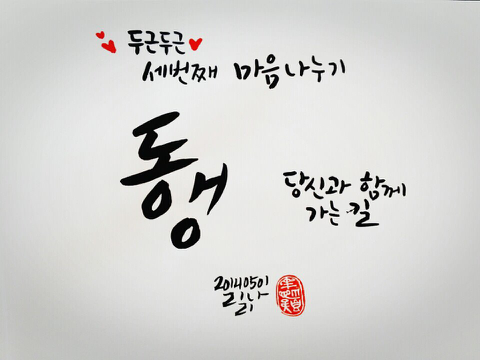 두근두근
세번째 마음나누기
동행
당신과 함께
가는 길
20140501